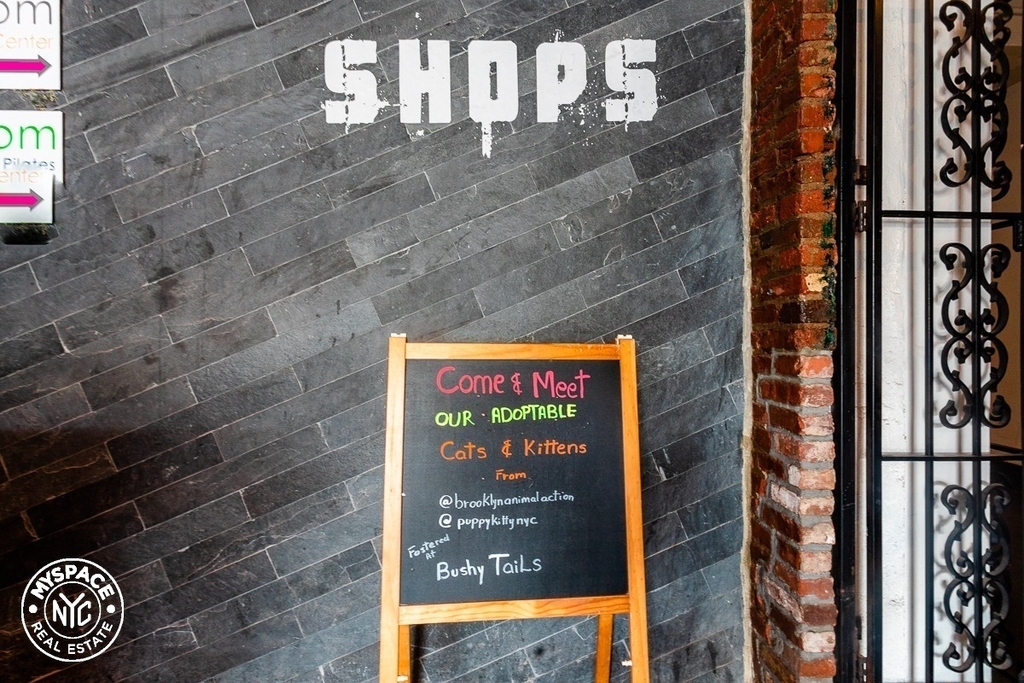 om
Center
om
Pilates
ente
SHOPS
Come & Meet
OUR ADOPTABLE
Cats & Kittens
From
@brooklynanimalaction
@puppykittynyc
Fostered
At
Bushy Tails
MYSPACE
NYC
REAL ESTATE